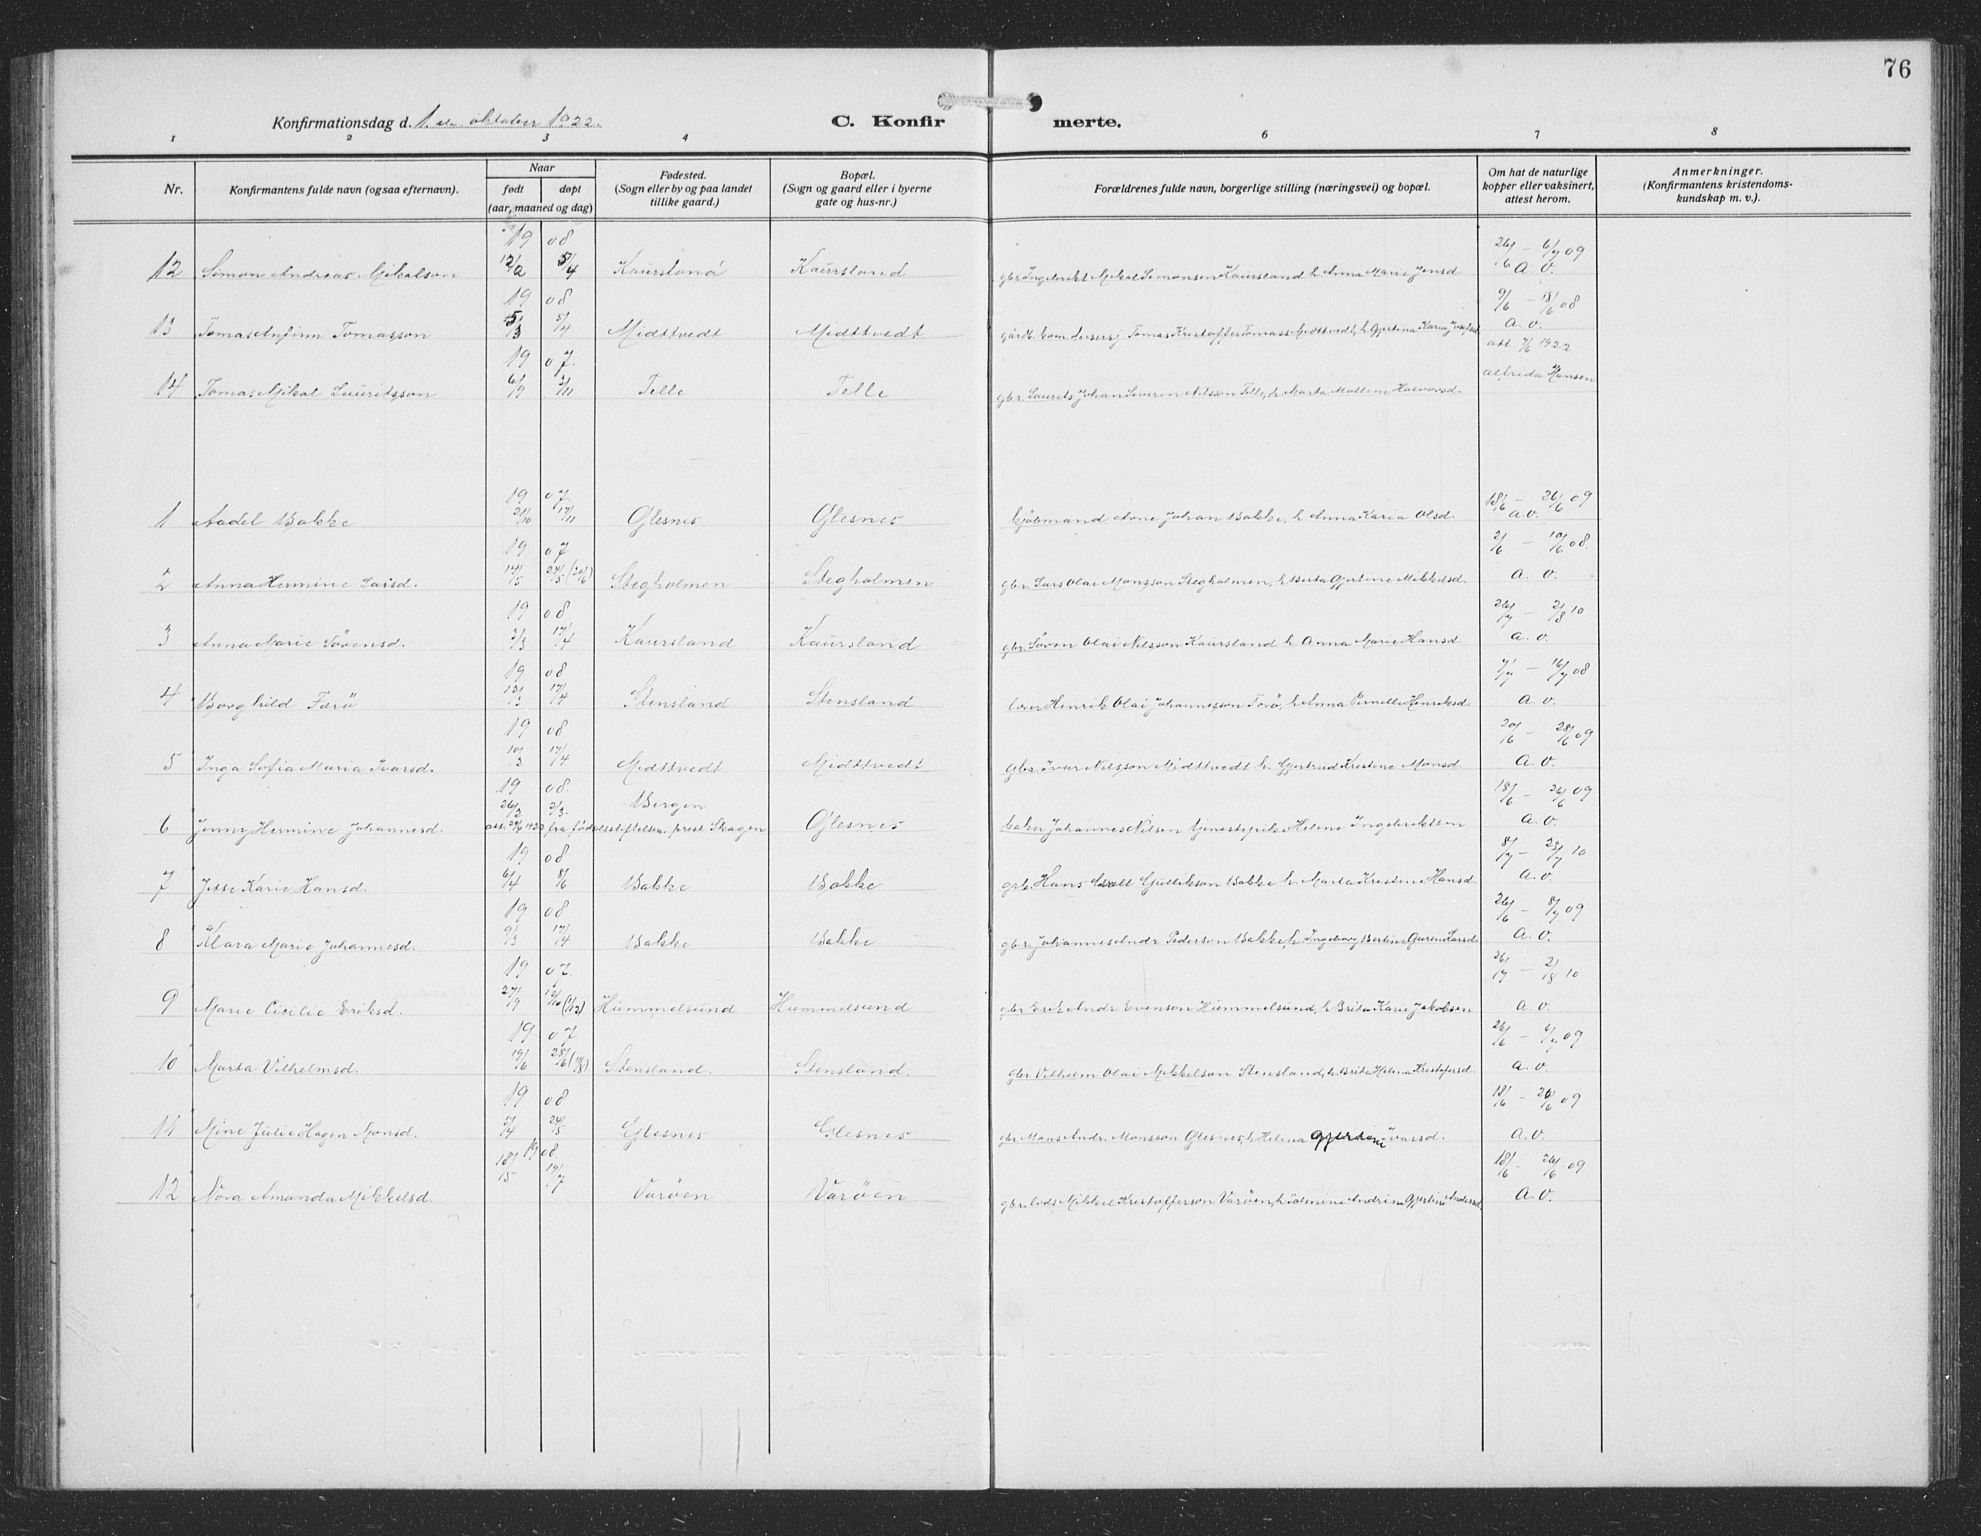 76
Konfirmationsdag d. 1. oktober 1922. C. Konfirmerte.
1 2 3 4 6 7 8
Nr. Konfirmantens fulde navn (ogsaa efternavn). Naar født døpt (aar, maaned og dag) Fødested. (Sogn eller by og paa landet tillike gaard.) Bopæl. (Sogn og gaard eller i byerne gate og hus-nr.) Forældrenes fulde navn, borgerlige stilling (næringsvei) og bopæl. Om hat de naturlige kopper eller vaksinert, attest herom. Anmerkninger. (Konfirmantens kristendomskundskap m. v.).
19 08 26/6 – 6/7 09
12 Simon Andreas Mikalson 12/2 5/4 Kaursland Kaursland gbr Ingebrikt Mikal Simonsen Kaursland h. Anna Marie Jonsd a. v.
19 08 9/6 – 18/6 08
13 Tomas Anfinn Tomasson 5/3 5/4 Midttvedt Midttvedt Tomas Kristoffer Tomass Midttvedt, h. Gjertina Karia a. v.
19 07 att. 7/6 1922
14 Tomas Mikal Lauritsson 6/9 3/11 Telle Telle gbr. Laurits Johan Severin Nilsson Telle, h. Marta Mallene Halvorsd. Alfrida Hansen
19 07 18/6 – 26/6 09
1 Aadel Bakke 21/10 17/11 Glesnes Glesnes kjøbmand Arne Johan Bakke, h. Anna Karia Olsd. a. v.
19 07 2/6 – 10/6 08.
2 Anna Hermine Larsd. 14/5 24/5 (30/6) Stegholmen Stegholmen gbr. Lars Olai Monsson Stegholmen, h. Berta Gjertine Mikkelsd. a. v.
19 08 26/7 – 2/8 10
3 Anna Marie Sørensd. 3/3 17/4 Kaursland Kaursland gbr. Søren Olai Nilsson Kaursland h. Anna Marie Hansd a. v.
19 08 7/7 – 16/7 08
4 Borghild Færø 13/3 17/4 Stensland Stensland lærer Henrik Olai Johannesson Færø, h. Anna Pernille Henriksd. a. v.
19 08 20/6 – 28/6 09
5 Inga Sofia Maria Ivarsd. 10/3 17/4 Midttvedt Midttvedt gbr. Ivar Nilsson Midttvedt h. Gjertrud Kristine Monsd. a. v.
19 08. Bergen 18/6 – 26/6 09
6 Jenny Hermine Johannesd. 26/2 2/3. att. fra fødselsstiftelsen, prest Skagen Glesnes Johannes Nilsen Helene Ingebriktsen a. v.
19 08 8/7 – 23/7 10
7 Jette Karie Hansd. 6/4 8/6 Bakke Bakke gbr. Hans Gullikson Bakke h. Marta Kristine Hansd. a. v.
19 08 26/6 – 8/7 09
8 Klara Marie Johannesd. 9/3 17/4 Bakke Bakke gbr. Johannes Andr. Pederson Bakke, h. Ingeborg Bertine Gurine Larsd. a. v.
19 07. 26/7 – 2/8 10
9 Marie Cicilie Eriksd. 27/9 13/10 (1/12) Hummelsund Hummelsund gbr Erik Andr Evenson Hummelsund, h. Brita Karie Jakobsen a. v.
19 07 26/6 – 6/7 09
10 Marta Vilhelmsd. 19/6 28/6 (11/8) Stensland. Stensland. gbr. Vilhelm Olai Mikkelson Stensland, h. Brita Helena Kristofersd. a. v.
19 08 18/6 – 26/6 09
11 Mine Julie Hagen Monsd. 5/4 24/5 Glesnes Glesnes gbr. Mons Andr. Monsson Glesnes, h. Helena Gjerdine Ivarsd. a. v.
19 08. 18/6 – 26/6 09
12 Nora Amanda Mikkelsd. 18/5 19/7 Varøen Varøen Mikkel Kristofferson Varøen, h. Andrine Gjertine Andersd. a. v.